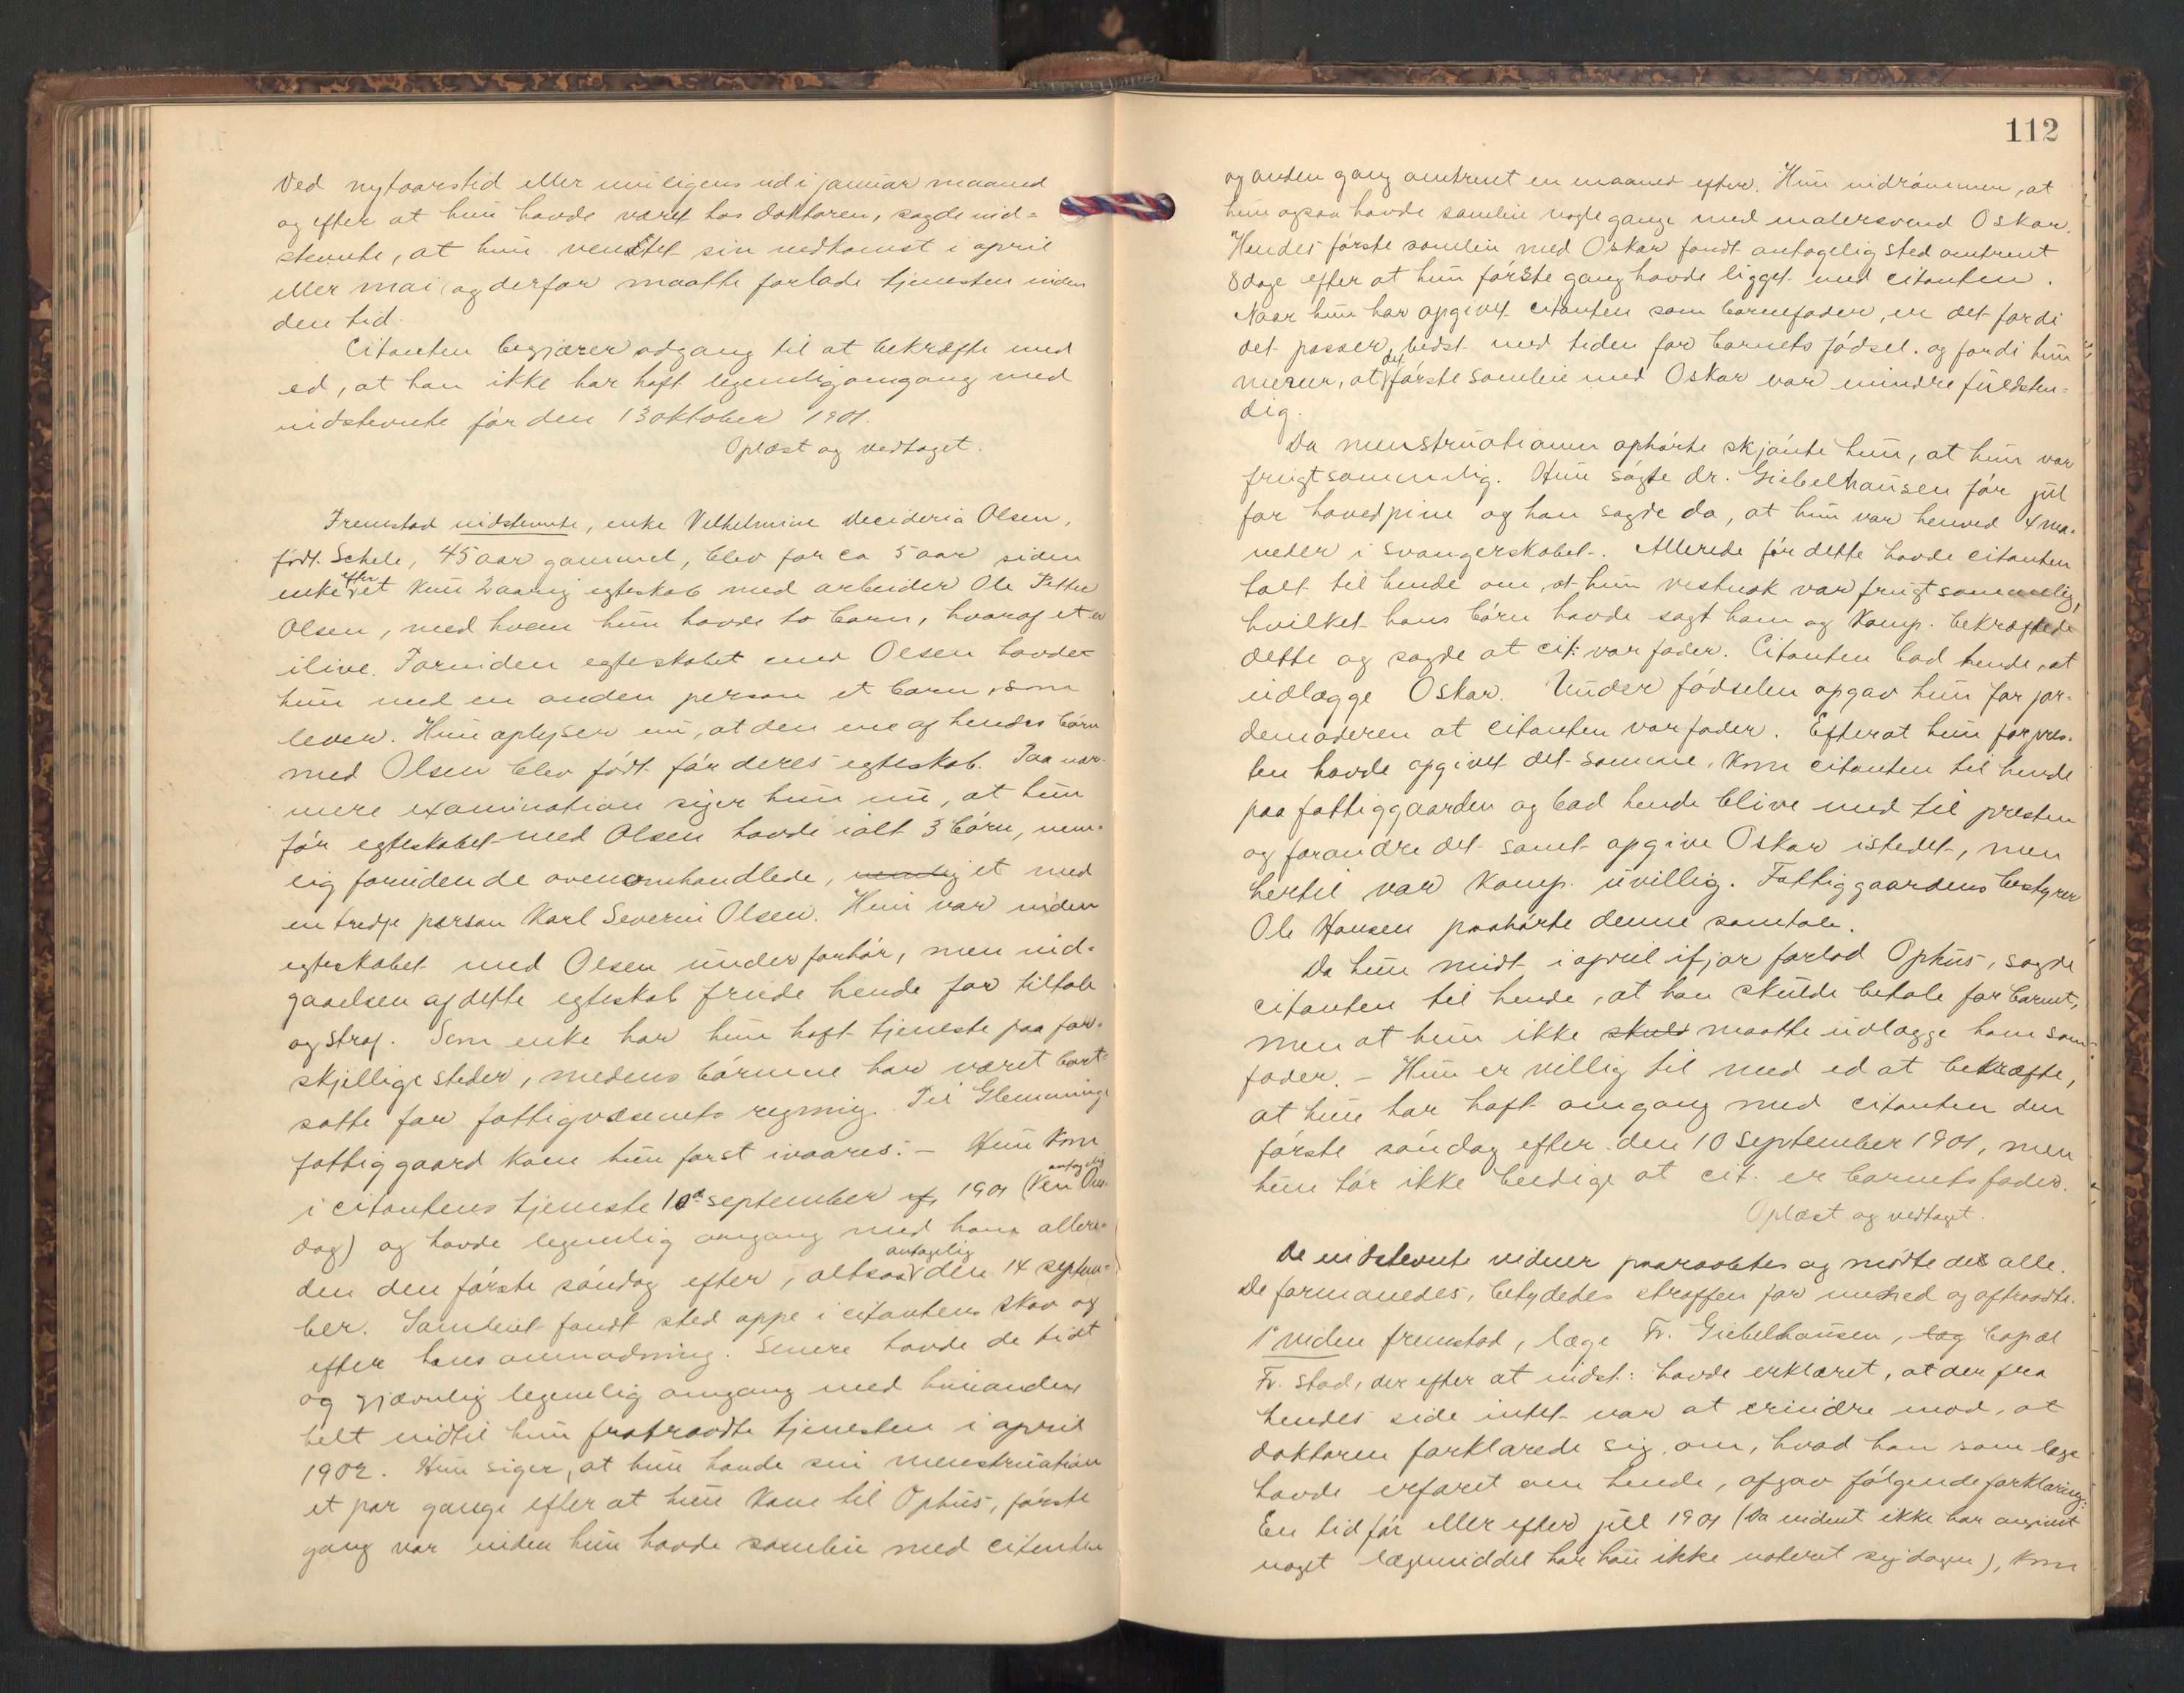 Ved nytaarstid eller muligens ud i januar maaned
og efter at hun havde været hos doktoren, sagde ind-
stevnte, at hun ventet sin nedkomst i april
eller mai og derfor maatte forlade tjenesten inden
den tid.
Citanten begjærer adgang til at bekræfte med
ed, at han ikke har haft legemlig omgang med
indstevnte før den 13 oktober 1901.
Oplæst og vedtaget.
Fremstod indstevnte, enke Vilhelmine Decideria Olsen,
født Schele, 45 aar gammel, blev for ca 5 aar siden
enke efter et kun 2 aarig egteskab med arbeider Ole Petter
Olsen, med hvem hun havde to barn, hvoraf et er
ilive. Forinden egteskabet med Olsen havde
hun med en anden person et barn, som
lever. Hun oplyser nu, at den ene af hendes børn
med Olsen blev født før deres egteskab. Paa nær-
mere examination siger hun nu, at hun
før egteskabet med Olsen havde ialt 3 børn, nem-
lig foruden de ovenomhandlede, nemlig et med
en tredje person Karl Severin Olsen. Hun var inden
egteskabet med Olsen under forhør, men ind-
gaaelsen af dette egteskab friede hende for tiltale
og straf. Som enke har hun haft tjeneste paa for-
skjellige steder, medens børnene har været bort-
satte for fattigvæsenets regning. Til Glemminge
fattiggaard kom hun først ivaares. – Hun kom
i citantens tjeneste 10de september 1901 (antagelig en Ons-
dag) og havde legemlig omgang med ham allere-
den den første søndag efter, altsaa antagelig den 14 septem-
ber. Samleiet fandt sted oppe i citantens skov og
efter hans anmodning. Senere havde de tidt
og jævnlig legemlig omgang med hinanden
helt indtil hun fratraadte tjenesten i april
1902. Hun siger, at hun havde sin menstruation
et par gange efter at hun kom til Ophus, første
gang var inden hun havde samleie med citanten
112
og anden gang omtrent en maaned efter. Hun indrømmer, at
hun ogsaa havde samleie nogle gange med malersvend Oskar.
Hendes første samleie med Oskar fandt antagelig sted omtrent
8 dage efter at hun første gang havde ligget med citanten.
Naar hun har opgivet citanten som barnefader, er det fordi
det passer bedst med tiden for barnets fødsel. og fordi hun
mener, at det første samleie med Oskar var mindre fuldsten-
dig.
Da menstruationen ophørte skjønte hun, at hun var
frugtsommelig. Hun søgte dr. Giebelhausen før jul
for hovedpine og han sagde da, at hun var henved 4 ma-
neder i svangerskabet. Allerede før dette havde citanten
talt til hende om, at hun vistnok var frugtsommelig,
hvilket hans børn havde sagt ham og Komp. bekræftede
dette og sagde at cit: var fader. Citanten bad hende, at
udlægge Oskar. Under fødselen opgav hun for jor-
demoderen at citanten var fader. Efterat hun for pres-
ten havde opgivet det samme, kom citanten til hende
paa fattiggaarden og bad hende blive med til presten
og forandre det samt opgive Oskar istedet, men
hertil var Komp. uvillig. Fattiggaardens bestyrer
Ole Hansen paahørte denne samtale.
Da hun midt i april ifjor forlod Ophus, sagde
citanten til hende, at han skulde betale for barnet,
men at hun ikke skuld maatte udlægge ham som
fader. – Hun er villig til med ed at bekræfte,
at hun har haft omgang med citanten den
første søndag efter den 10 september 1901, men
hun tør ikke beedige at cit. er barnets fader.
Oplæst og vedtaget.
De indstevnte vidner paaraabtes og mødte de alle.
De formanedes, betydedes straffen for mened og aftraadte.
1ste viden fremstod, læge Fr. Giebelhausen, log bopæl
Fr. stad, der efter at indst: havde erklæret, at der fra
hendes side intet var at erindre mod, at
doktoren forklarede sig om, hvad han som læge
havde erfaret om hende, afgav følgende forklaring:
En tid før eller efter jul 1901 (da vidnet ikke har angivet
noget lægemiddel har han ikke noteret sig dagen), kom